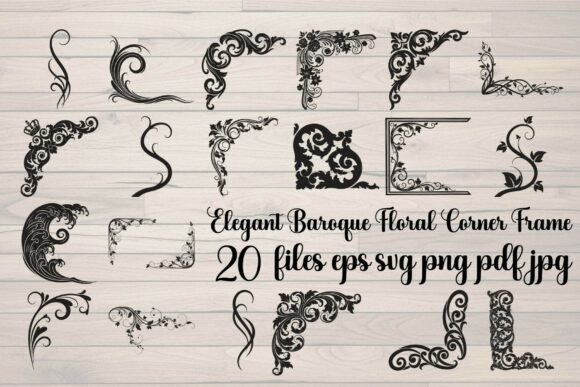 Elegant Baroque Floral Corner Frame
20 files eps svg png pdf jpg